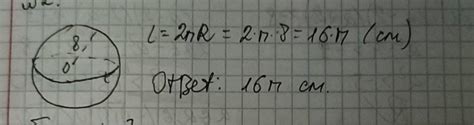 8,1
O'
l = 2πR = 2·π·8 = 16·π (см)
Ответ: 16π см.